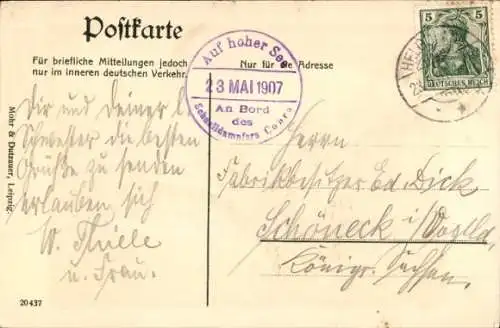 Postkarte
Für briefliche Mitteilungen jedoch
nur im inneren deutschen Verkehr.
Nur für die Adresse
Auf hoher See
23 MAI 1907
An Bord
des
Schnelldampfers Cobra
5 5
DEUTSCHES REICH
HEL
Dir und deiner l.
Schwester die besten
Grüße zu senden
erlauben sich
W. Thiele
u. Frau.
Herrn
Fabrikbesitzer Ed. Dick
Schöneck i/Vogtld.
Königr. Sachsen.
Mohr & Dutzauer, Leipzig.
20437